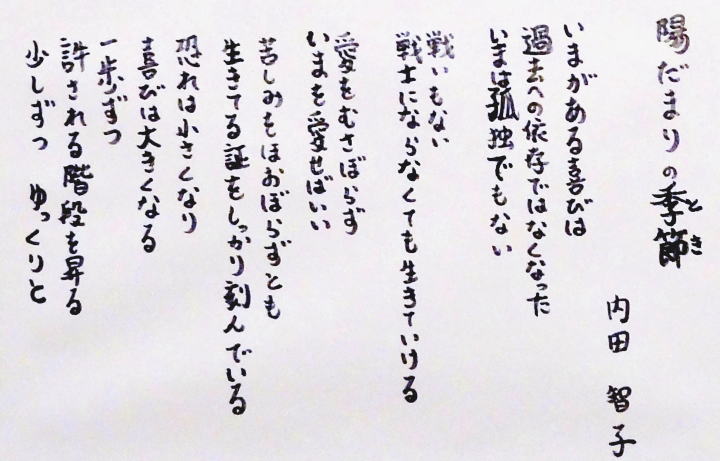 陽だまりの季節
とき
内田 智子
いまがある喜びは
過去への依存ではなくなった
いまは孤独でもない
戦いもない
戦士にならなくても生きていける
愛をむさぼらず
いまを愛せばいい
苦しみをほおばらずとも
生きてる証をしっかり刻んでいる
恐れは小さくなり
喜びは大きくなる
一歩ずつ
許される階段を昇る
少しずつ ゆっくりと